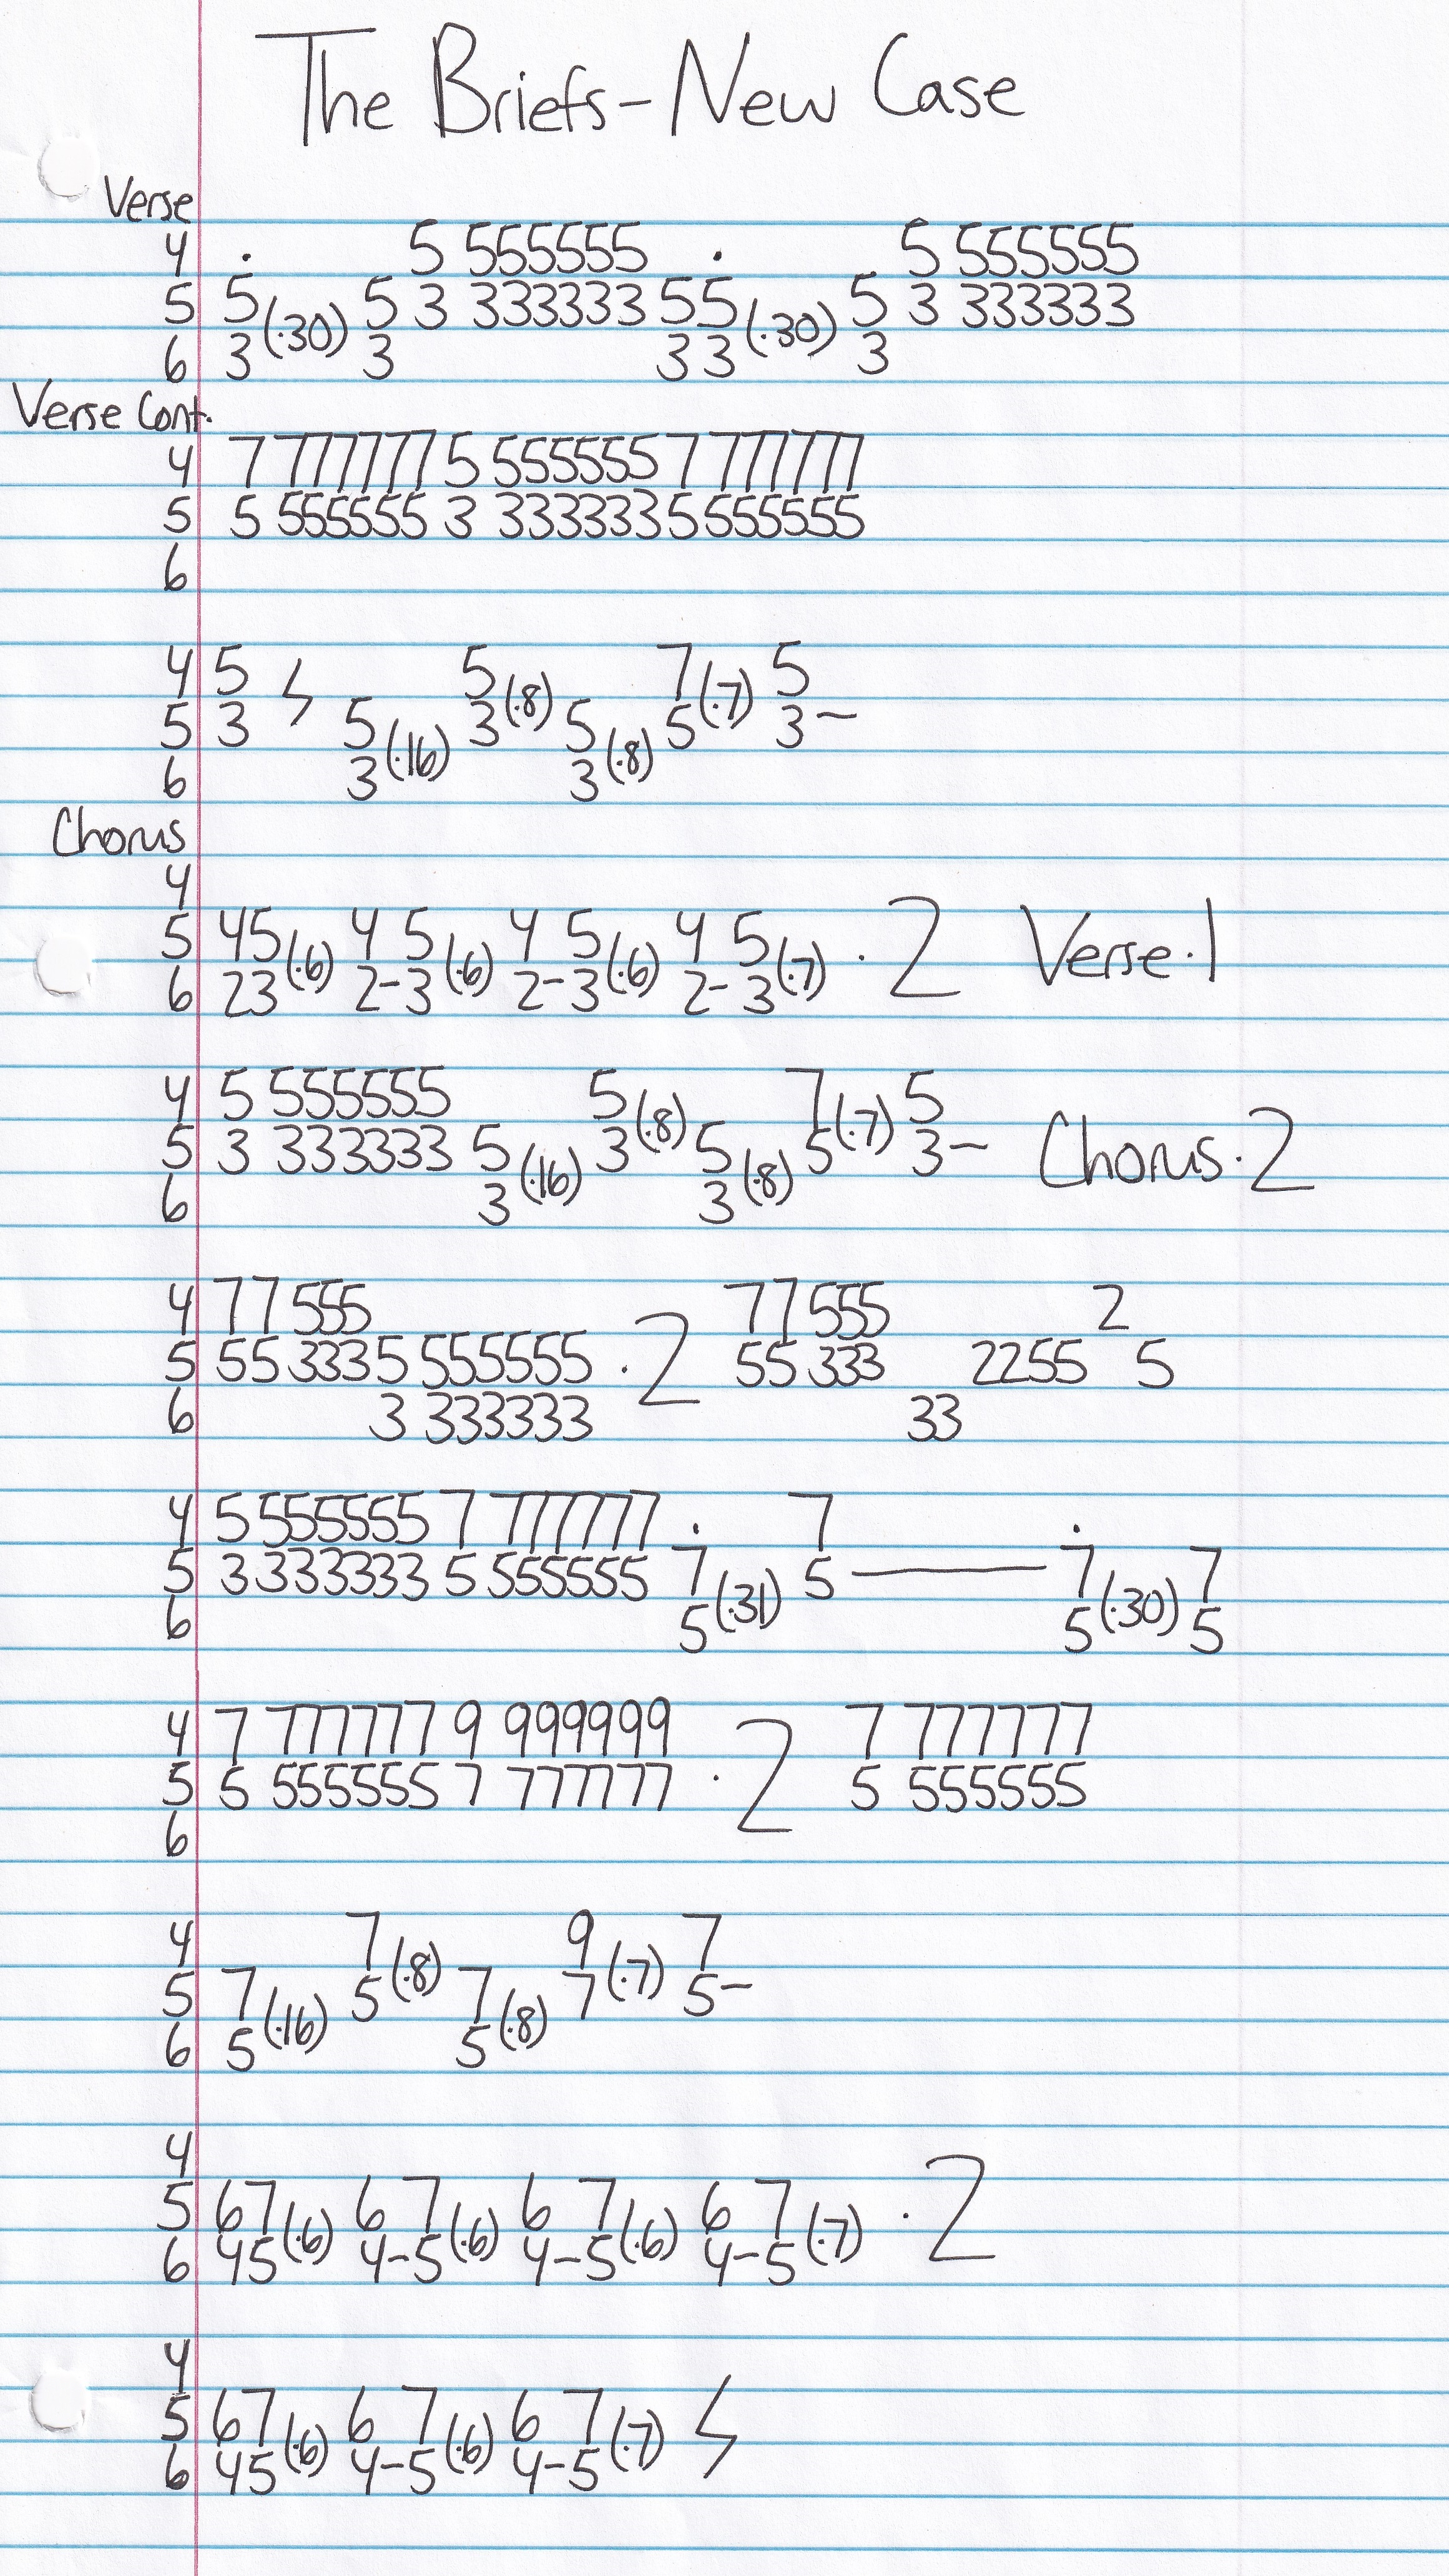 The Briefs - New Case
Verse
4 . 5 555555 . 5 555555
5 5 (.30) 5 3 333333 55 (.30) 5 3 333333
6 3 3 33 3
Verse Cont.
4 7 777777 5 555555 7 777777
5 5 555555 3 333333 5 555555
6
4 5 5 (.8) 7 (.7) 5
5 3 5 (.16) 3 5 (.8) 5 3 –
6 3 3
Chorus
4
5 45 (.6) 4 5 (.6) 4 5 (.6) 4 5 (.7) . 2 Verse . 1
6 23 2-3 2-3 2-3
4 5 555555 5 (.8) 7 (.7) 5
5 3 333333 5 (.16) 3 5 (.8) 5 3 – Chorus . 2
6 3 3
4 77 555 77 555 2
5 55 333 5 555555 . 2 55 333 2255 5
6 3 333333 33
4 5 555555 7 777777 . 7 .
5 3 333333 5 555555 7 (.31) 5 — 7 (.30) 7
6 5 5 5
4 7 777777 9 999999 7 777777
5 5 555555 7 777777 . 2 5 555555
6
4 7 (.8) 9 (.7) 7
5 7 (.16) 5 7 (.8) 7 5 –
6 5 5
4
5 67 (.6) 6 7 (.6) 6 7 (.6) 6 7 (.7) . 2
6 45 4-5 4-5 4-5
4
5 67 (.6) 6 7 (.6) 6 7 (.7)
6 45 4-5 4-5